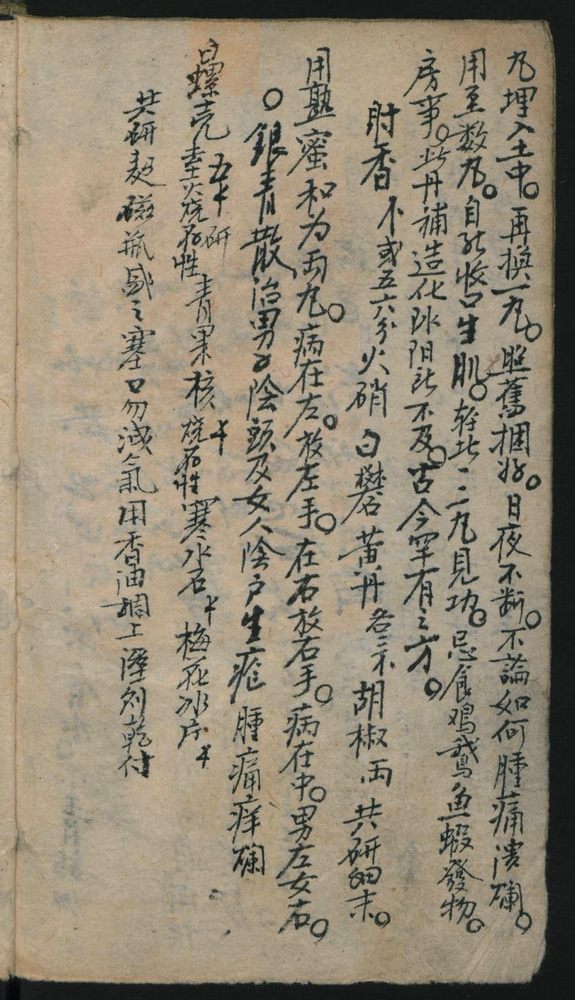 丸埋入土中。再換一丸。照舊捆好。日夜不断。不論如何腫痛潰爛。
用至数丸。自能收口生肌。輕此一二丸見功。忌食鸡鵞魚蝦發物。
房事。此丹補造化 陰陽 不及。古今罕有之方。
射香 或五六分 火硝 白礬 黃丹 各三 胡椒 両 共研細末。
用熟蜜和为両丸。病在左。放左手。在右放右手。病在中。男左女右。
○銀青散 治男子陰頭及女人陰户生疮 腫痛痒爛
白螺壳 五 研 火燒存性 青果核 燒存性 寒水石 梅花冰片
共研起磁瓶盛之塞口勿泄氣用香油調上濕則乾付